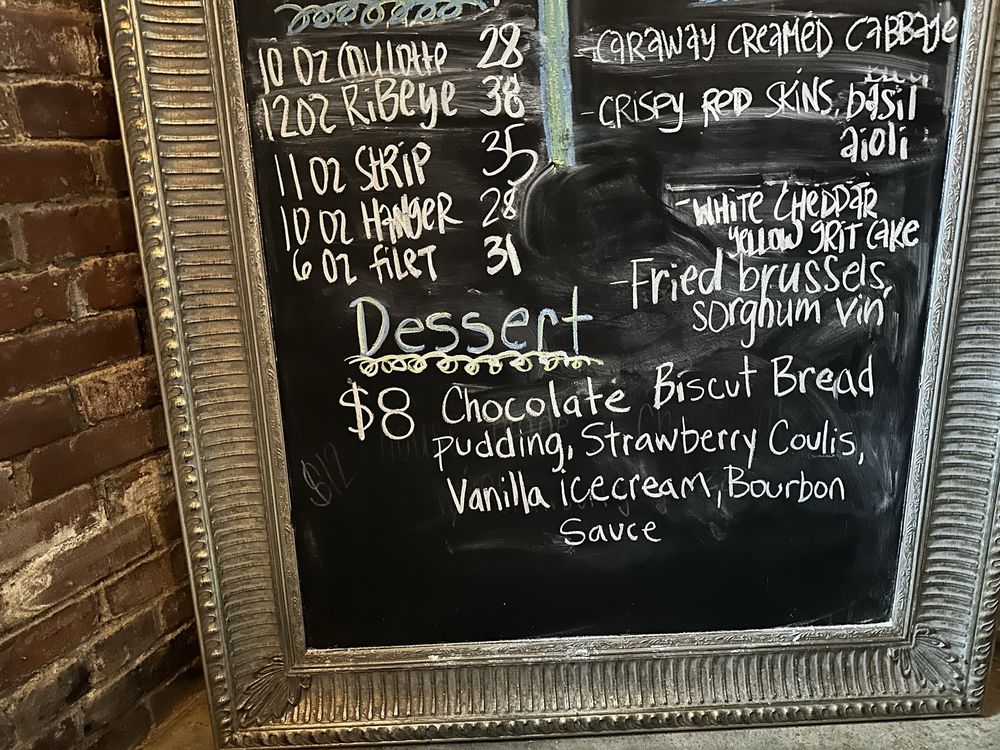 10 oz COULOTTE 28
12oz RiBeye 38
11 oz STRiP 35
10 oz HANGER 28
6 oz filet 31
-CARAWAY CREAMED CABBAGE
-CRISPY RED SKINS, basil
aioli
-WHITE CHEDDAR
YELLOW GRIT CAKE
-Fried brussels,
sorghum vin
Dessert
$8 Chocolate Biscut Bread
pudding, Strawberry Coulis,
Vanilla icecream, Bourbon
Sauce
$12